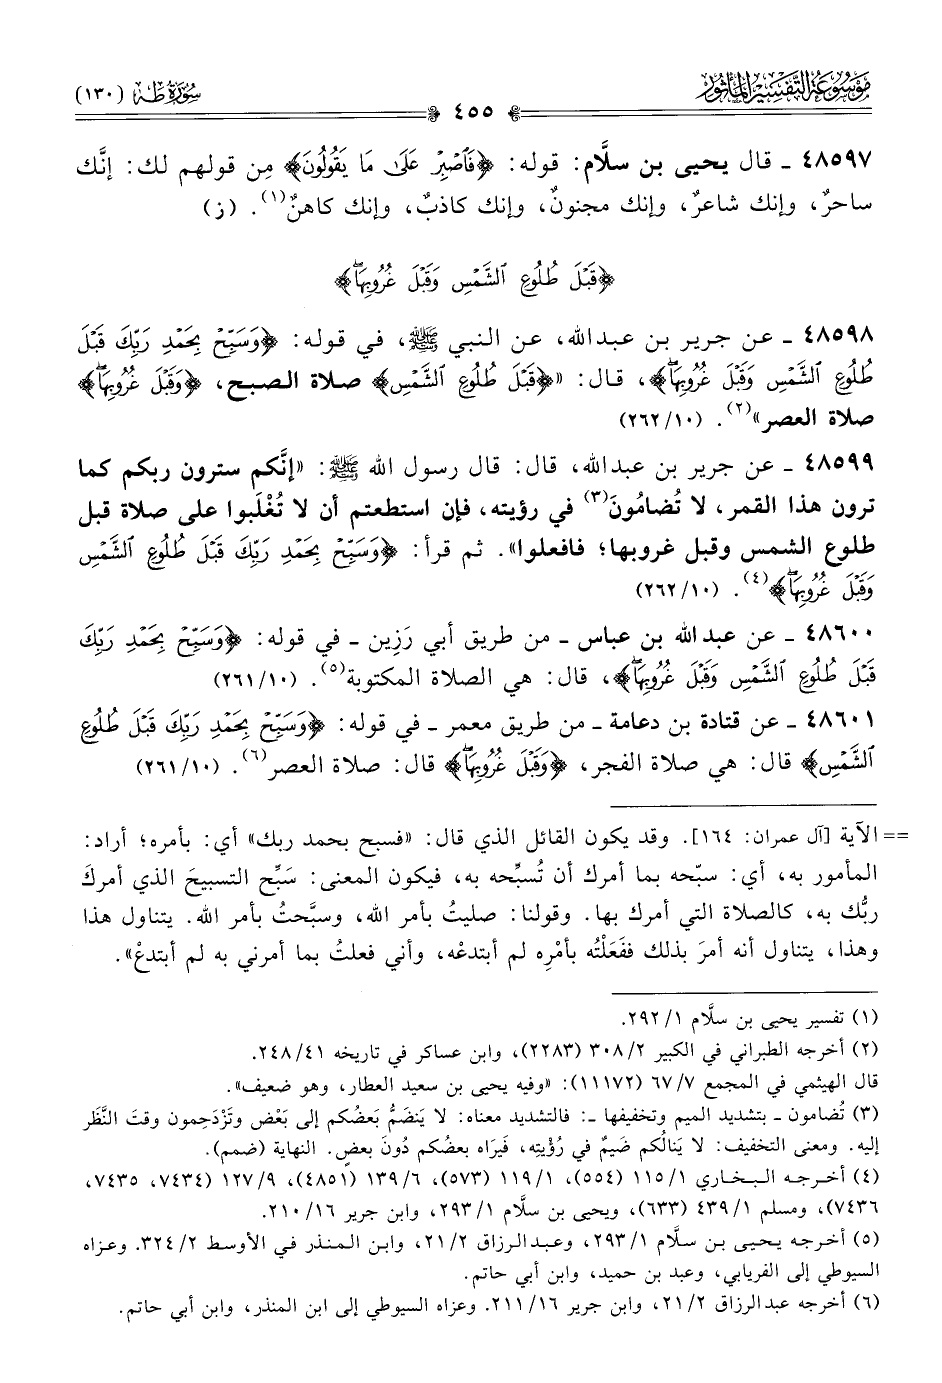 موسوعة التفسير المأثور
سورة طه (١٣٠)
٤٥٥
٤٨٥٩٧ ـ قال يحيى بن سلَّام: قوله: ﴿فَٱصْبِرْ عَلَىٰ مَا يَقُولُونَ﴾ مِن قولهم لك: إنَّك
ساحرٌ، وإنك شاعرٌ، وإنك مجنونٌ، وإنك كاذبٌ، وإنك كاهنٌ(١). (ز)
﴿قَبْلَ طُلُوعِ ٱلشَّمْسِ وَقَبْلَ غُرُوبِهَاۖ﴾
٤٨٥٩٨ ـ عن جرير بن عبدالله، عن النبي ﷺ، في قوله: ﴿وَسَبِّحْ بِحَمْدِ رَبِّكَ قَبْلَ
طُلُوعِ ٱلشَّمْسِ وَقَبْلَ غُرُوبِهَاۖ﴾، قال: «﴿قَبْلَ طُلُوعِ ٱلشَّمْسِ﴾ صلاة الصبح، ﴿وَقَبْلَ غُرُوبِهَاۖ﴾
صلاة العصر»(٢). (١٠/ ٢٦٢)
٤٨٥٩٩ ـ عن جرير بن عبدالله، قال: قال رسول الله ﷺ: «إنَّكم سترون ربكم كما
ترون هذا القمر، لا تُضامُونَ(٣) في رؤيته، فإن استطعتم أن لا تُغْلَبوا على صلاة قبل
طلوع الشمس وقبل غروبها؛ فافعلوا». ثم قرأ: ﴿وَسَبِّحْ بِحَمْدِ رَبِّكَ قَبْلَ طُلُوعِ ٱلشَّمْسِ
وَقَبْلَ غُرُوبِهَاۖ﴾(٤). (١٠/ ٢٦٢)
٤٨٦٠٠ ـ عن عبدالله بن عباس ـ من طريق أبي رَزِين ـ في قوله: ﴿وَسَبِّحْ بِحَمْدِ رَبِّكَ
قَبْلَ طُلُوعِ ٱلشَّمْسِ وَقَبْلَ غُرُوبِهَاۖ﴾، قال: هي الصلاة المكتوبة(٥). (١٠/ ٢٦١)
٤٨٦٠١ ـ عن قتادة بن دعامة ـ من طريق معمر ـ في قوله: ﴿وَسَبِّحْ بِحَمْدِ رَبِّكَ قَبْلَ طُلُوعِ
ٱلشَّمْسِ﴾ قال: هي صلاة الفجر، ﴿وَقَبْلَ غُرُوبِهَاۖ﴾ قال: صلاة العصر(٦). (١٠/ ٢٦١)
== الآية [آل عمران: ١٦٤]. وقد يكون القائل الذي قال: «فسبح بحمد ربك» أي: بأمره؛ أراد:
المأمور به، أي: سبّحه بما أمرك أن تُسبِّحه به، فيكون المعنى: سَبِّح التسبيحَ الذي أمركَ
ربُّك به، كالصلاة التي أمرك بها. وقولنا: صليتُ بأمر الله، وسبَّحتُ بأمر الله. يتناول هذا
وهذا، يتناول أنه أمرَ بذلك ففَعَلْتُه بأمْرِه لم أبتدعْه، وأني فعلتُ بما أمرني به لم أبتدعْ».
(١) تفسير يحيى بن سلَّام ١/ ٢٩٢.
(٢) أخرجه الطبراني في الكبير ٢/ ٣٠٨ (٢٢٨٣)، وابن عساكر في تاريخه ٤١/ ٢٤٨.
قال الهيثمي في المجمع ٧/ ٦٧ (١١١٧٢): «وفيه يحيى بن سعيد العطار، وهو ضعيف».
(٣) تُضامون ـ بتشديد الميم وتخفيفها ـ: فالتشديد معناه: لا يَنضَمُّ بَعضُكم إلى بَعْض وتَزْدَحِمون وقتَ النَّظَر
إليه. ومعنى التخفيف: لا يَنالُكم ضَيمٌ في رُؤْيتِه، فيَراه بعضُكم دُونَ بعضٍ. النهاية (ضمم).
(٤) أخرجه البخاري ١/ ١١٥ (٥٥٤)، ١/ ١١٩ (٥٧٣)، ٦/ ١٣٩ (٤٨٥١)، ٩/ ١٢٧ (٧٤٣٤، ٧٤٣٥،
٧٤٣٦)، ومسلم ١/ ٤٣٩ (٦٣٣)، ويحيى بن سلَّام ١/ ٢٩٣، وابن جرير ١٦/ ٢١٠.
(٥) أخرجه يحيى بن سلَّام ١/ ٢٩٣، وعبدالرزاق ٢/ ٢١، وابن المنذر في الأوسط ٢/ ٣٢٤. وعزاه
السيوطي إلى الفريابي، وعبد بن حميد، وابن أبي حاتم.
(٦) أخرجه عبدالرزاق ٢/ ٢١، وابن جرير ١٦/ ٢١١. وعزاه السيوطي إلى ابن المنذر، وابن أبي حاتم.